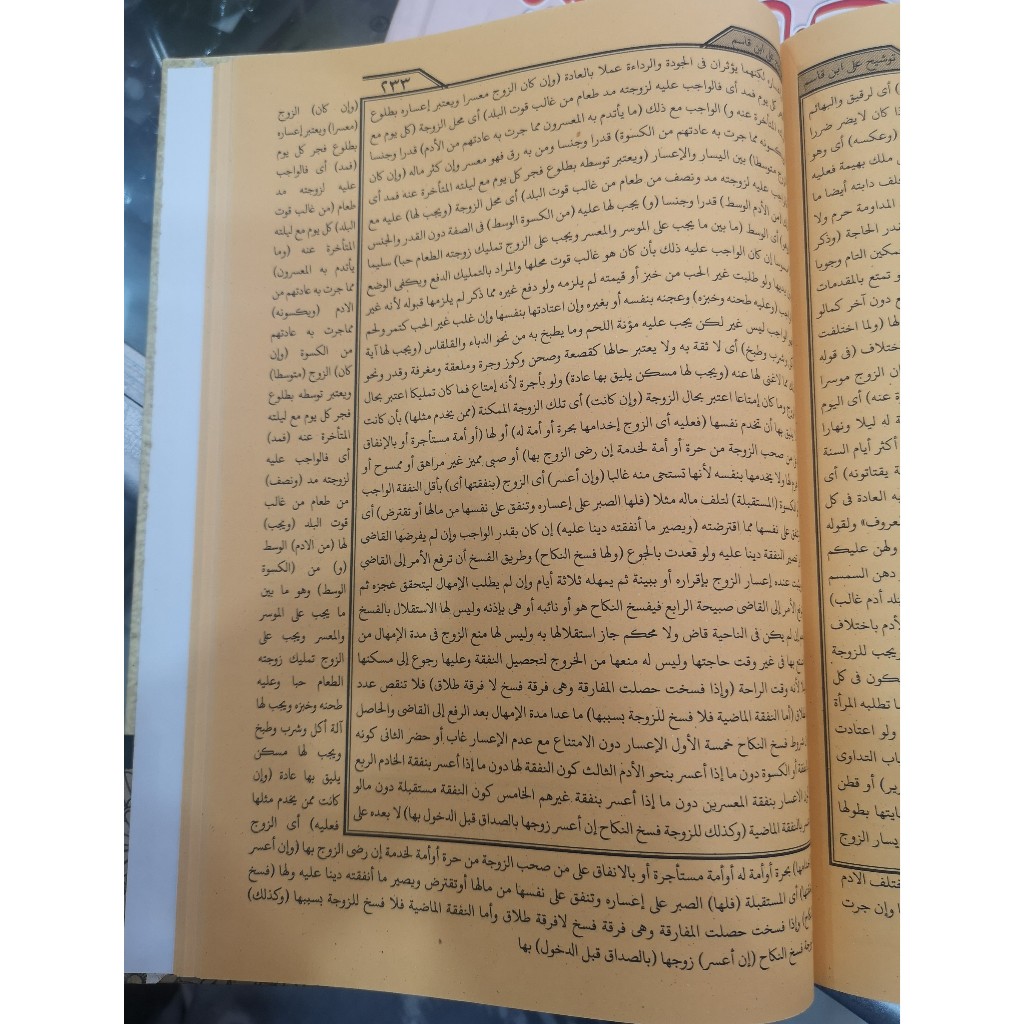 ٢٣٣
على ابن قاسم
لكنهما يؤثران فى الجودة والرداءة عملا بالعادة (وإن كان الزوج معسرا ويعتبر إعساره بطلوع
كل يوم فمد أى فالواجب عليه لزوجته مد طعام من غالب قوت البلد) أى محل الزوجة (كل يوم مع
المتأخرة عنه و) الواجب مع ذلك (ما يأتدم به المعسرون مما جرت به عادتهم من الأدم) قدرا وجنسا
(ويكسونه مما جرت به عادتهم من الكسوة) قدرا وجنسا ومن به رق فهو معسر وإن كثر ماله (وإن كان
متوسطا) بين اليسار والإعسار (ويعتبر توسطه بطلوع فجر كل يوم مع ليلته المتأخرة عنه فمد أى
عليه لزوجته مد ونصف من طعام من غالب قوت البلد) أى محل الزوجة (ويجب لها) عليه مع
(من الأدم الوسط) قدرا وجنسا (و) يجب لها عليه (من الكسوة الوسط) فى الصفة دون القدر والجنس
أى الوسط (ما بين ما يجب على الموسر والمعسر ويجب على الزوج تمليك زوجته الطعام حبا) سليما
إن كان الواجب عليه ذلك بأن كان هو غالب قوت محلها والمراد بالتمليك الدفع ويكفى الوضع
ولو طلبت غير الحب من خبز أو قيمته لم يلزمه ولو دفع غيره مما ذكر لم يلزمها قبوله لأنه غير
(وعليه طحنه وخبزه) وعجنه بنفسه أو بغيره وإن اعتادتها بنفسها وإن غلب غير الحب كتمر ولحم
الواجب ليس غير لكن يجب عليه مؤنة اللحم وما يطبخ به من نحو الدباء والقلقاس (ويجب لها آلة
أكل وشرب وطبخ) أى لا ثقة به ولا يعتبر حالها كقصعة وصحن وكوز وجرة وملعقة ومغرفة وقدر ونحو
مما لاغنى لها عنه (ويجب لها مسكن يليق بها عادة) ولو بأجرة لأنه إمتاع فما كان تمليكا اعتبر بحال
الزوج وما كان إمتاعا اعتبر بحال الزوجة (وإن كانت) أى تلك الزوجة الممكنة (ممن يخدم مثلها) بأن كانت
يليق بها أن تخدم نفسها (فعليه أى الزوج إخدامها بحرة أو أمة له) أو لها (أو أمة مستأجرة أو بالإنفاق
على من صحب الزوجة من حرة أو أمة لخدمة إن رضى الزوج بها) أو صبى مميز غير مراهق أو ممسوح أو
ولا يخدمها بنفسه لأنها تستحى منه غالبا (وإن أعسر) أى الزوج (بنفقتها أى) بأقل النفقة الواجب
والكسوة (المستقبلة) لتلف ماله مثلا (فلها الصبر على إعساره وتنفق على نفسها من مالها أو تقترض) أى
على نفسها مما اقترضته (ويصير ما أنفقته دينا عليه) إن كان بقدر الواجب وإن لم يفرضها القاضى
تصير النفقة دينا عليه ولو قعدت بالجوع (ولها فسخ النكاح) وطريق الفسخ أن ترفع الأمر إلى القاضى
عنده إعسار الزوج بإقراره أو ببينة ثم يمهله ثلاثة أيام وإن لم يطلب الإمهال ليتحقق عجزه ثم
الأمر إلى القاضى صبيحة الرابع فيفسخ النكاح هو أو نائبه أو هى بإذنه وليس لها الاستقلال بالفسخ
لم يكن فى الناحية قاض ولا محكم جاز استقلالها به وليس لها منع الزوج فى مدة الإمهال من
بها فى غير وقت حاجتها وليس له منعها من الخروج لتحصيل النفقة وعليها رجوع إلى مسكنها
لأنه وقت الراحة (وإذا فسخت حصلت المفارقة وهى فرقة فسخ لا فرقة طلاق) فلا تنقص عدد
(أما النفقة الماضية فلا فسخ للزوجة بسببها) ما عدا مدة الإمهال بعد الرفع إلى القاضى والحاصل
شروط فسخ النكاح خمسة الأول الإعسار دون الامتناع مع عدم الإعسار غاب أو حضر الثانى كونه
أو الكسوة دون ما إذا أعسر بنحو الأدم الثالث كون النفقة لها دون ما إذا أعسر بنفقة الخادم الربع
الاعسار بنفقة المعسرين دون ما إذا أعسر بنفقة غيرهم الخامس كون النفقة مستقبلة دون مالو
بالنفقة الماضية (وكذلك للزوجة فسخ النكاح إن أعسر زوجها بالصداق قبل الدخول بها) لا بعده على
(وإن كان) الزوج
(معسرا) ويعتبر إعساره
بطلوع فجر كل يوم
(فمد) أى فالواجب
عليه لزوجته مد
طعام (من غالب قوت
البلد) كل يوم مع ليلته
المتأخرة عنه (وما
يأتدم به المعسرون)
مما جرت به عادتهم من
الادم (ويكسونه)
مماجرت به عادتهم
من الكسوة (وإن
كان) الزوج (متوسطا)
ويعتبر توسطه بطلوع
فجر كل يوم مع ليلته
المتأخرة عنه (فمد)
أى فالواجب عليه
لزوجته مد (ونصف)
من طعام من غالب
قوت البلد (ويجب)
لها (من الادم) الوسط
(و) من (الكسوة
الوسط) وهو ما بين
ما يجب على الموسر
والمعسر ويجب على
الزوج تمليك زوجته
الطعام حبا وعليه
طحنه وخبزه ويجب لها
آلة أكل وشرب وطبخ
ويجب لها مسكن
يليق بها عادة (وإن
كانت ممن يخدم مثلها
فعليه) أى الزوج
بحرة أوأمة له أوأمة مستأجرة أو بالانفاق على من صحب الزوجة من حرة أوأمة لخدمة إن رضى الزوج بها (وإن أعسر
أى المستقبلة (فلها) الصبر على إعساره وتنفق على نفسها من مالها أوتقترض ويصير ما أنفقته دينا عليه ولها (فسخ
وإذا فسخت حصلت المفارقة وهى فرقة فسخ لافرقة طلاق وأما النفقة الماضية فلا فسخ للزوجة بسببها (وكذلك)
فسخ النكاح (إن أعسر) زوجها (بالصداق قبل الدخول) بها
توشيح على ابن قاسم
أى لرقيق والبهائم
كان لايضر ضررا
(وعكسه) أى وهو
ملك بهيمة فعليه
دابته أيضا ما
المداومة حرم ولا
الحاجة (وذكر
التام وجوبا
تمتع بالمقدمات
دون آخر كمالو
(ولما اختلفت
(فى قوله
الزوج موسرا
عنه) أى اليوم
له ليلا ونهارا
أكثر أيام السنة
يقتاتونه) أى
العادة فى كل
ولقوله
ولهن عليكم
دهن السمسم
أدم غالب)
باختلاف
يجب للزوجة
فى كل
تطلبه المرأة
ولو اعتادت
التداوى
أو قطن
بطولها
يسار الزوج
الادم
وإن جرت